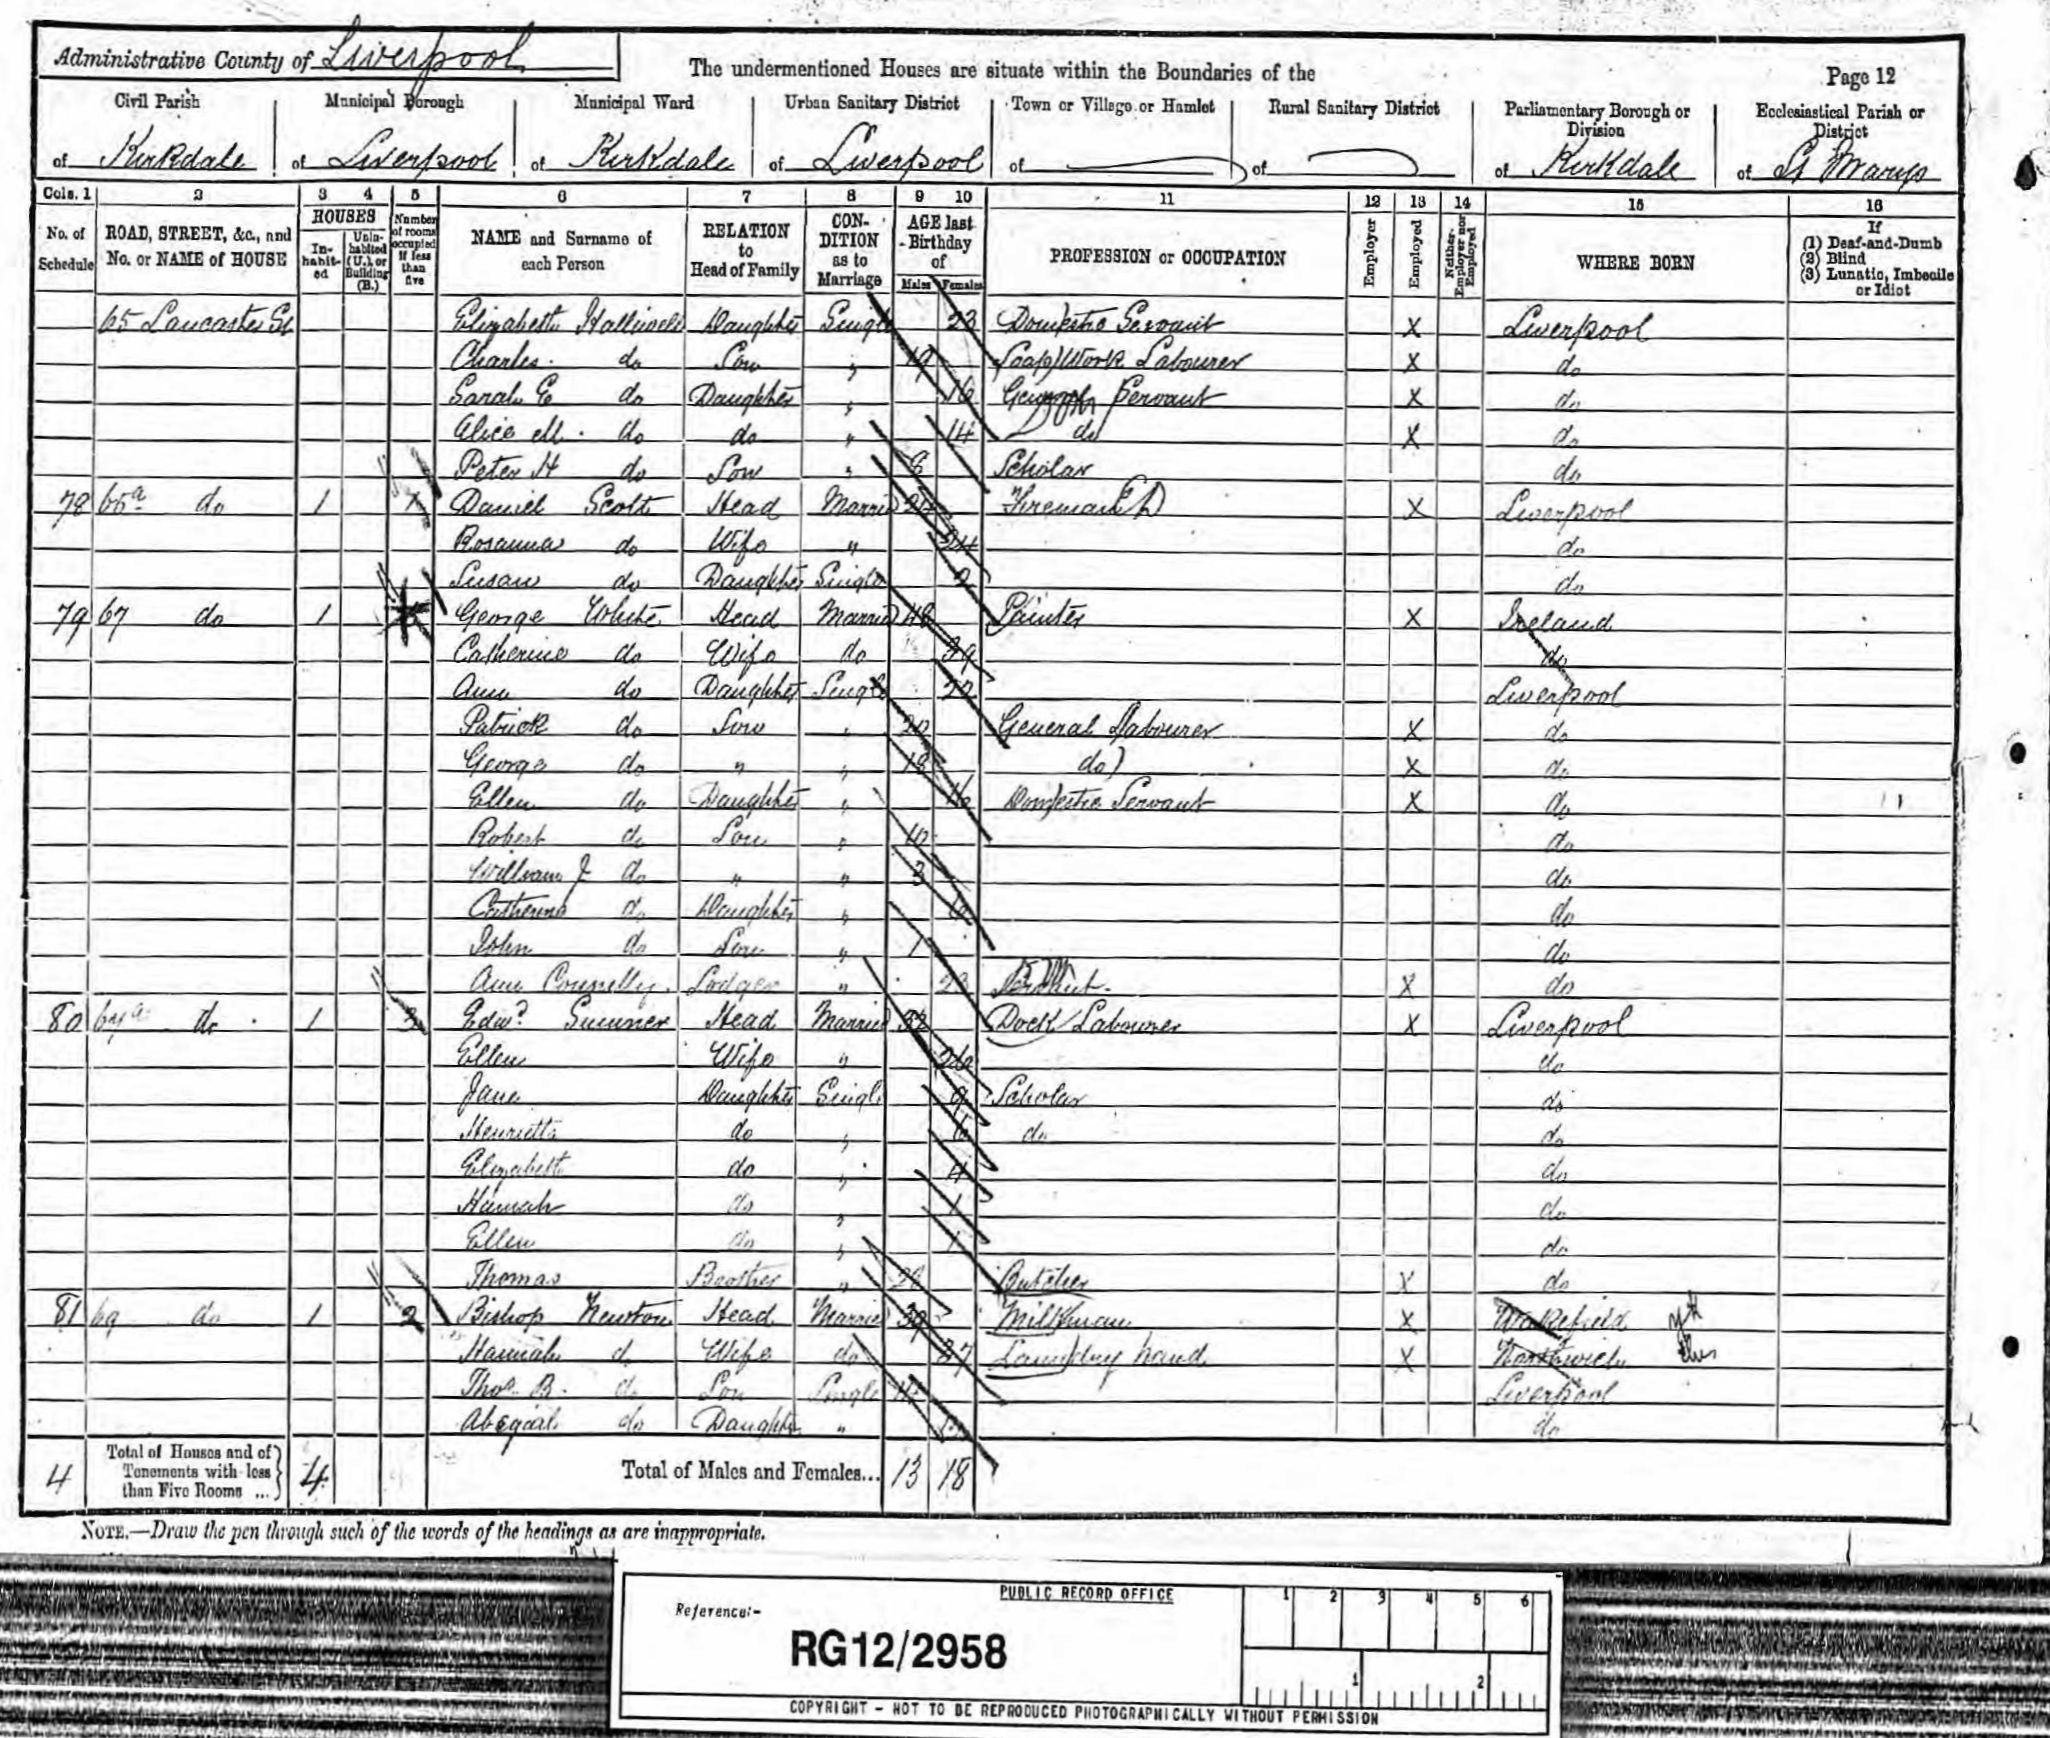 Administrative County of Liverpool
The undermentioned Houses are situate within the Boundaries of the
Page 12
Civil Parish of Kirkdale
Municipal Borough of Liverpool
Municipal Ward of Kirkdale
Urban Sanitary District of Liverpool
Town or Village or Hamlet of
Rural Sanitary District of
Parliamentary Borough or Division of Kirkdale
Ecclesiastical Parish or District of St Marys
Cols. 1 2 3 4 5 6 7 8 9 10 11 12 13 14 15 16
No. of Schedule
ROAD, STREET, &c., and No. or NAME of HOUSE
HOUSES
Inhabited
Uninhabited (U.), or Building (B.)
Number of rooms occupied if less than five
NAME and Surname of each Person
RELATION to Head of Family
CONDITION as to Marriage
AGE last Birthday of
Males Females
PROFESSION or OCCUPATION
Employer
Employed
Neither Employer nor Employed
WHERE BORN
If
(1) Deaf-and-Dumb
(2) Blind
(3) Lunatic, Imbecile or Idiot
65 Lancaster St Elizabeth Halliwell Daughter Single 23 Domestic Servant X Liverpool
Charles do Son " 19 Soap Work Labourer X do
Sarah E do Daughter " 16 Servant X do
Alice M. do do " 14 do X do
Peter H do Son " 8 Scholar do
78 65a do 1 Daniel Scott Head Married Fireman X Liverpool
Rosanna do Wife " 24 do
Susan do Daughter Single do
79 67 do 1 George White Head Married 48 Painter X Ireland
Catherine do Wife do 39 do
Ann do Daughter Single 22 Liverpool
Patrick do Son " 20 General Labourer X do
George do " " 18 do X do
Ellen do Daughter " 16 Domestic Servant X do
Robert do Son " 10 do
William J do " " 3 do
Catherine do Daughter " do
John do Son " 1 do
Ann Connelly Lodger " Servant X do
80 67a do 1 3 Edwd Sumner Head Married 32 Dock Labourer X Liverpool
Ellen Wife " do
Jane Daughter Single 9 Scholar do
Henrietta do " do do
Elizabeth do " 4 do
Hannah do " 1 do
Ellen do " 1 do
Thomas Brother " 28 Butcher X do
81 69 do 1 2 Bishop Newton Head Married 39 Milkman X Wakefield
Hannah do Wife do 37 Laundry hand X Northwich
Thos B. do Son Single Liverpool
Abegail do Daughter " do
4 Total of Houses and of Tenements with less than Five Rooms ... 4 Total of Males and Females... 13 18
NOTE.—Draw the pen through such of the words of the headings as are inappropriate.
PUBLIC RECORD OFFICE
1 2 3 4 5 6
Reference:-
RG12/2958
1 2
COPYRIGHT - NOT TO BE REPRODUCED PHOTOGRAPHICALLY WITHOUT PERMISSION